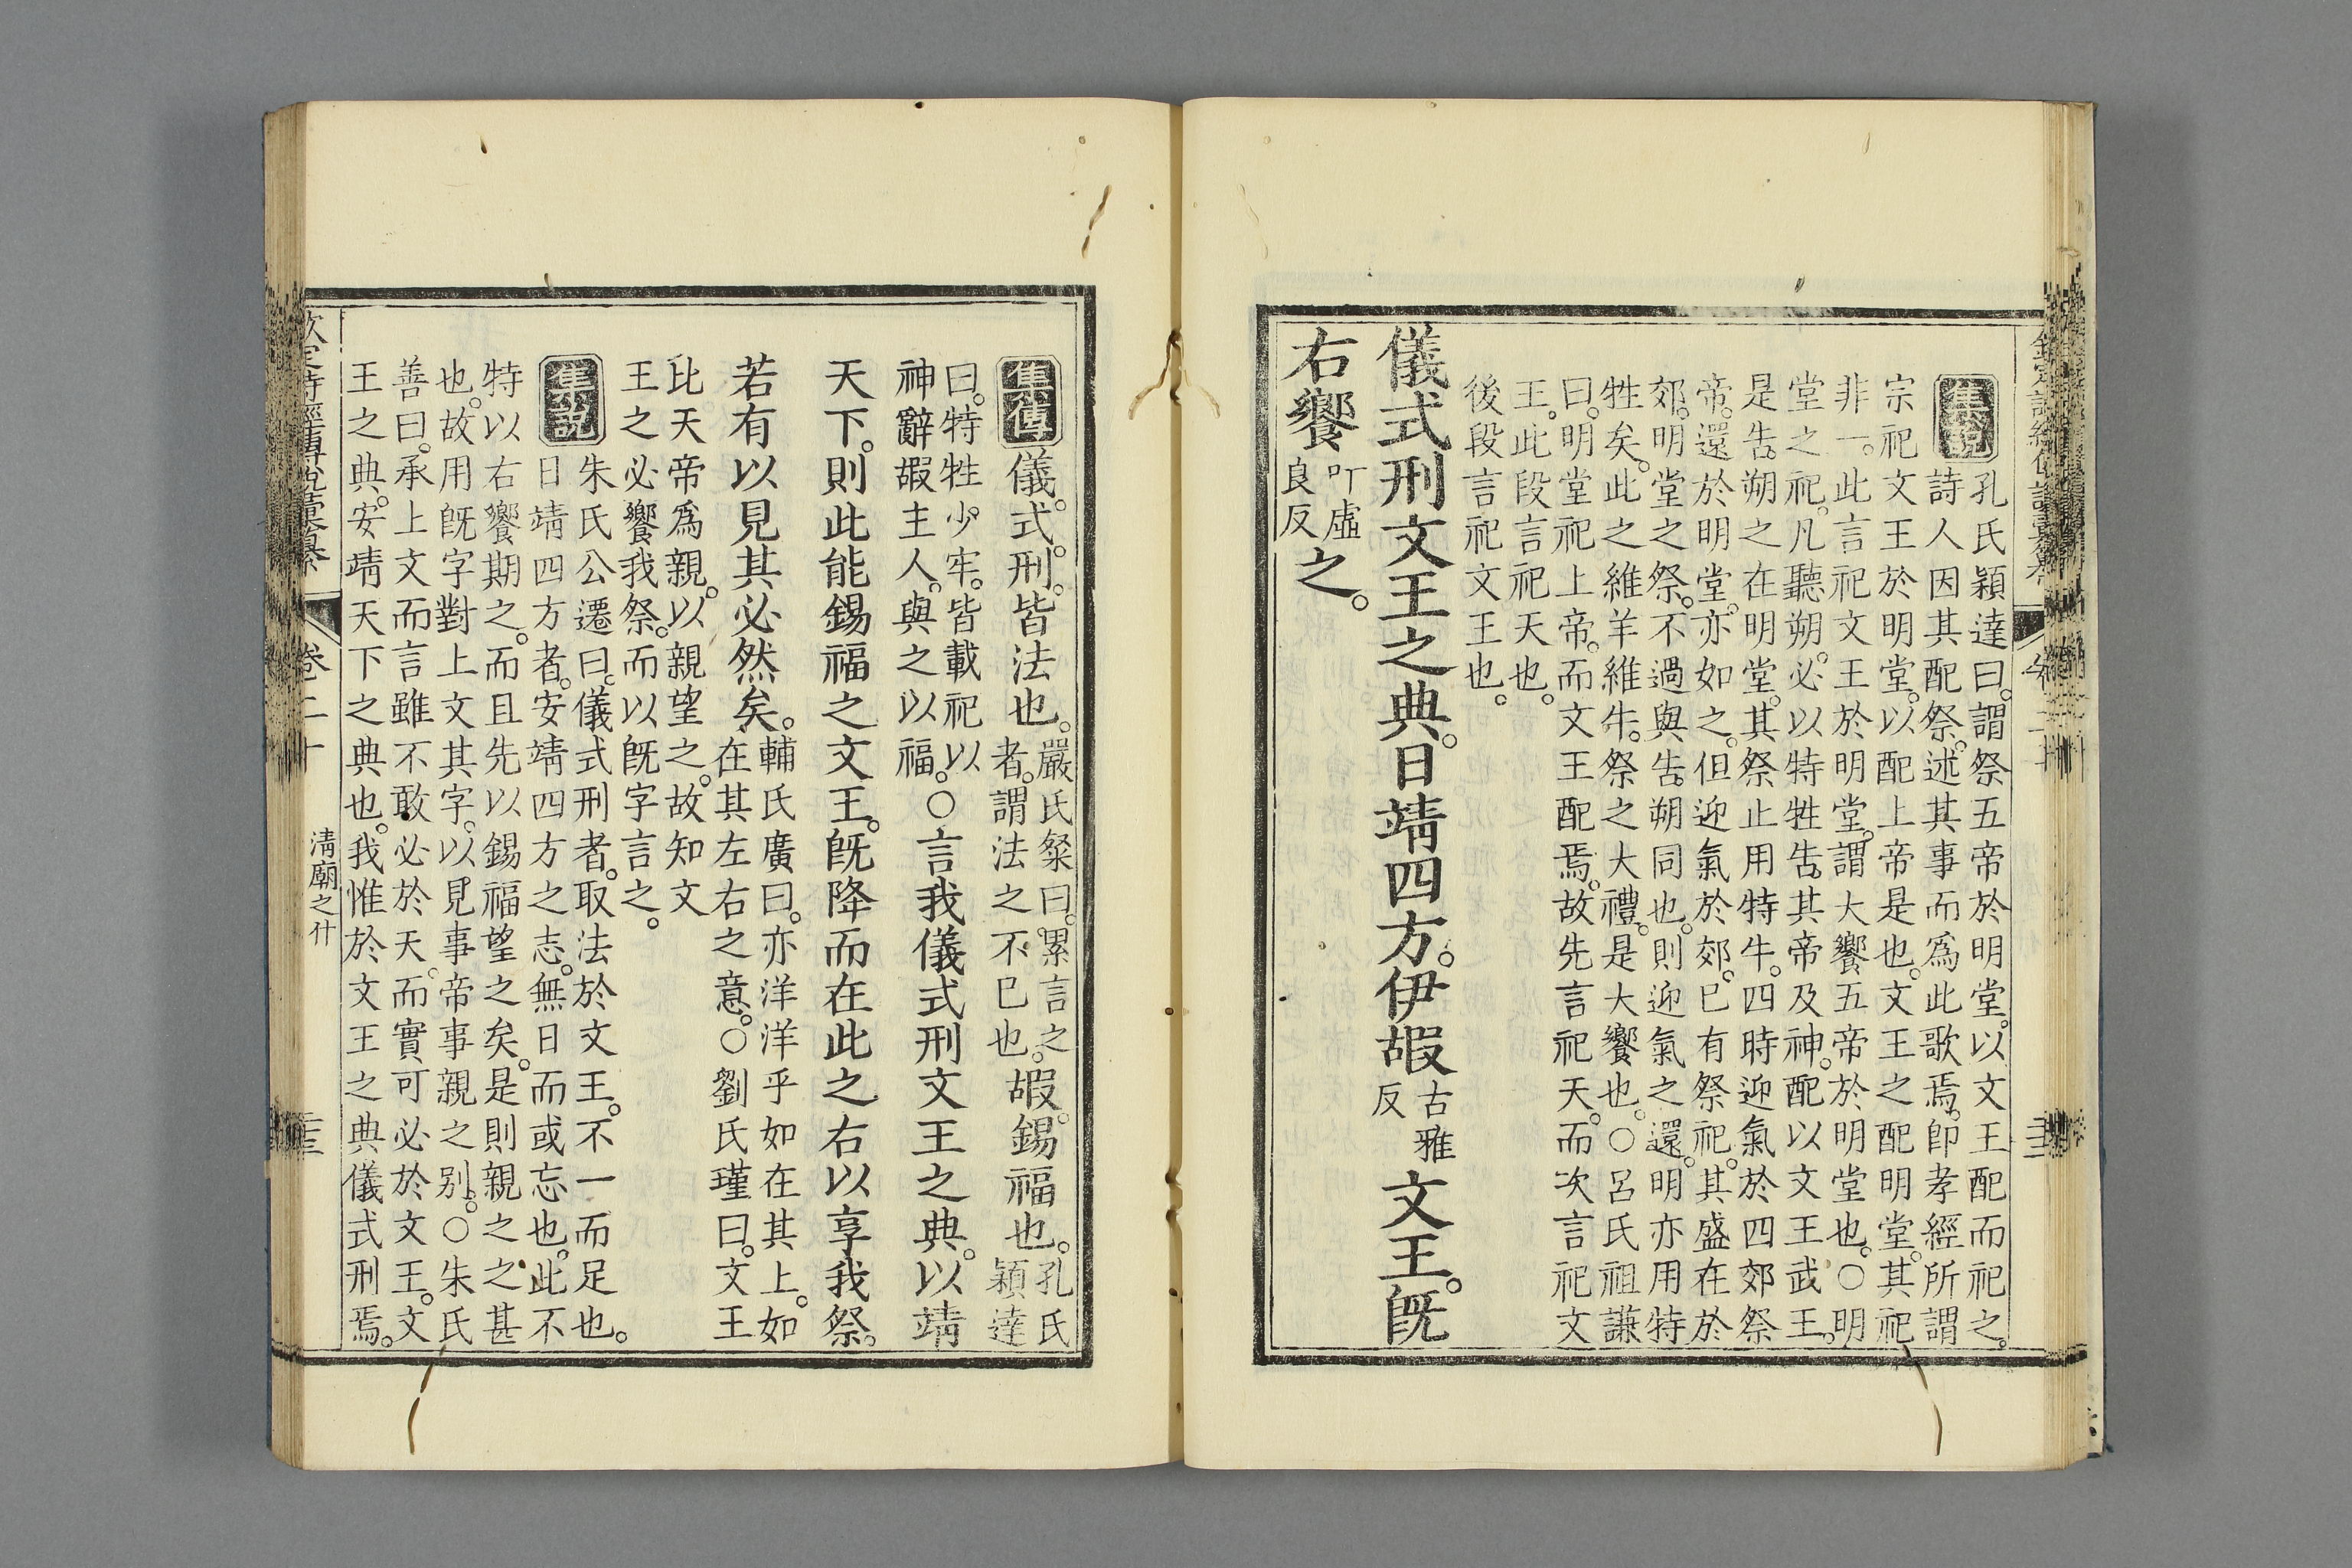 集說
孔氏穎達曰。謂祭五帝於明堂。以文王配而祀之。
詩人因其配祭。述其事而爲此歌焉。卽孝經所謂
宗祀文王於明堂。以配上帝是也。文王之配明堂。其祀
非一。此言祀文王於明堂。謂大饗五帝於明堂也。○明
堂之祀。凡聽朔。必以特牲告其帝及神。配以文王武王。
是告朔之在明堂。其祭止用特牛。四時迎氣於四郊祭
帝。還於明堂。亦如之。但迎氣於郊。已有祭祀。其盛在於
郊。明堂之祭。不過與告朔同也。則迎氣之還。明亦用特
牲矣。此之維羊維牛。祭之大禮。是大饗也。○呂氏祖謙
曰。明堂祀上帝。而文王配焉。故先言祀天。而次言祀文
王。此段言祀天也。
後段言祀文王也。
儀式刑文王之典。日靖四方。伊嘏
古雅
反
文王。旣
右饗
叶虛
良反
之。
集傳
儀。式。刑。皆法也。
嚴氏粲曰。累言之
者。謂法之不已也。
嘏。錫福也。
孔氏
穎達
曰。特牲少牢。皆載祀以
神辭嘏主人。與之以福。
○言我儀式刑文王之典。以靖
天下。則此能錫福之文王。旣降而在此之右以享我祭。
若有以見其必然矣。
輔氏廣曰。亦洋洋乎如在其上。如
在其左右之意。○劉氏瑾曰。文王
比天帝爲親。以親望之。故知文
王之必饗我祭。而以旣字言之。
集說
朱氏公遷曰。儀式刑者。取法於文王。不一而足也。
日靖四方者。安靖四方之志。無日而或忘也。此不
特以右饗期之。而且先以錫福望之矣。是則親之之甚
也。故用旣字對上文其字。以見事帝事親之别。○朱氏
善曰。承上文而言雖不敢必於天。而實可必於文王。文
王之典。安靖天下之典也。我惟於文王之典儀式刑焉。
欽定詩經傳說彙纂
卷二十
淸廟之什